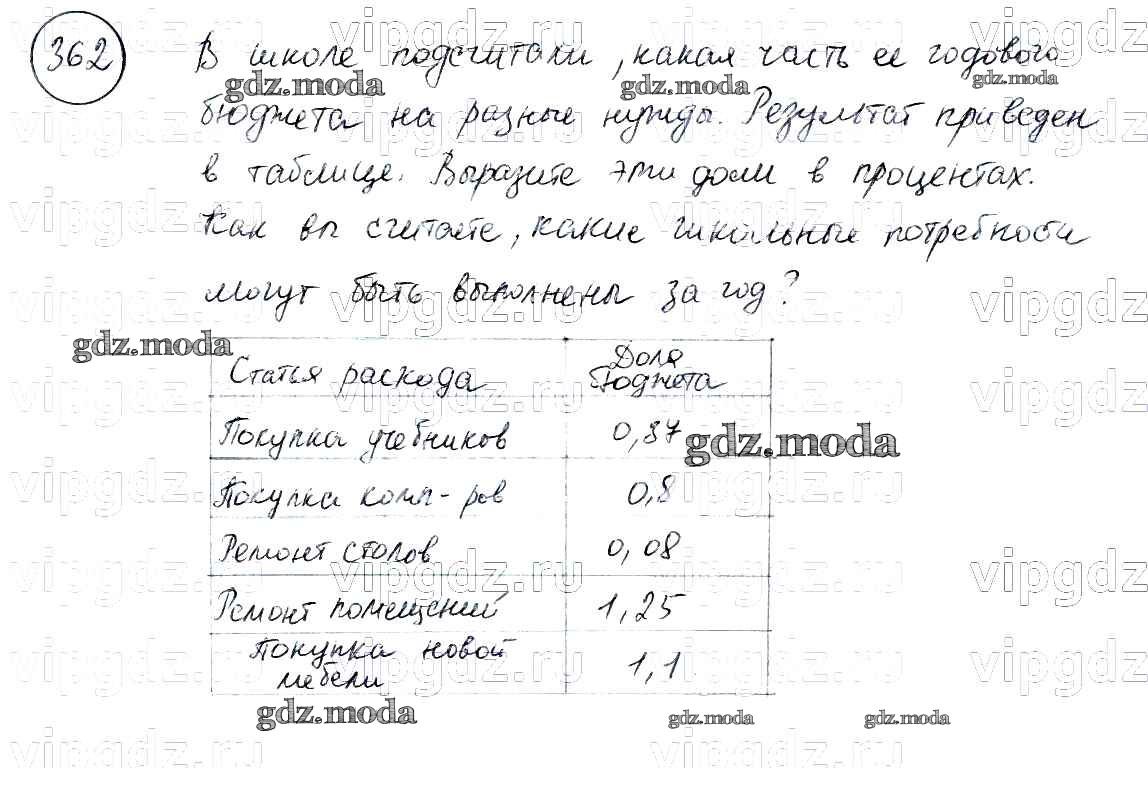 362 В школе подсчитали, какая часть ее годового
бюджета на разные нужды. Результат приведен
в таблице. Выразите эти доли в процентах.
Как вы считаете, какие школьные потребности
могут быть выполнены за год?
Статья расхода Доля бюджета
Покупка учебников 0,37
Покупка комп-ров 0,8
Ремонт столов 0,08
Ремонт помещений 1,25
Покупка новой мебели 1,1
gdz.moda
vipgdz.ru